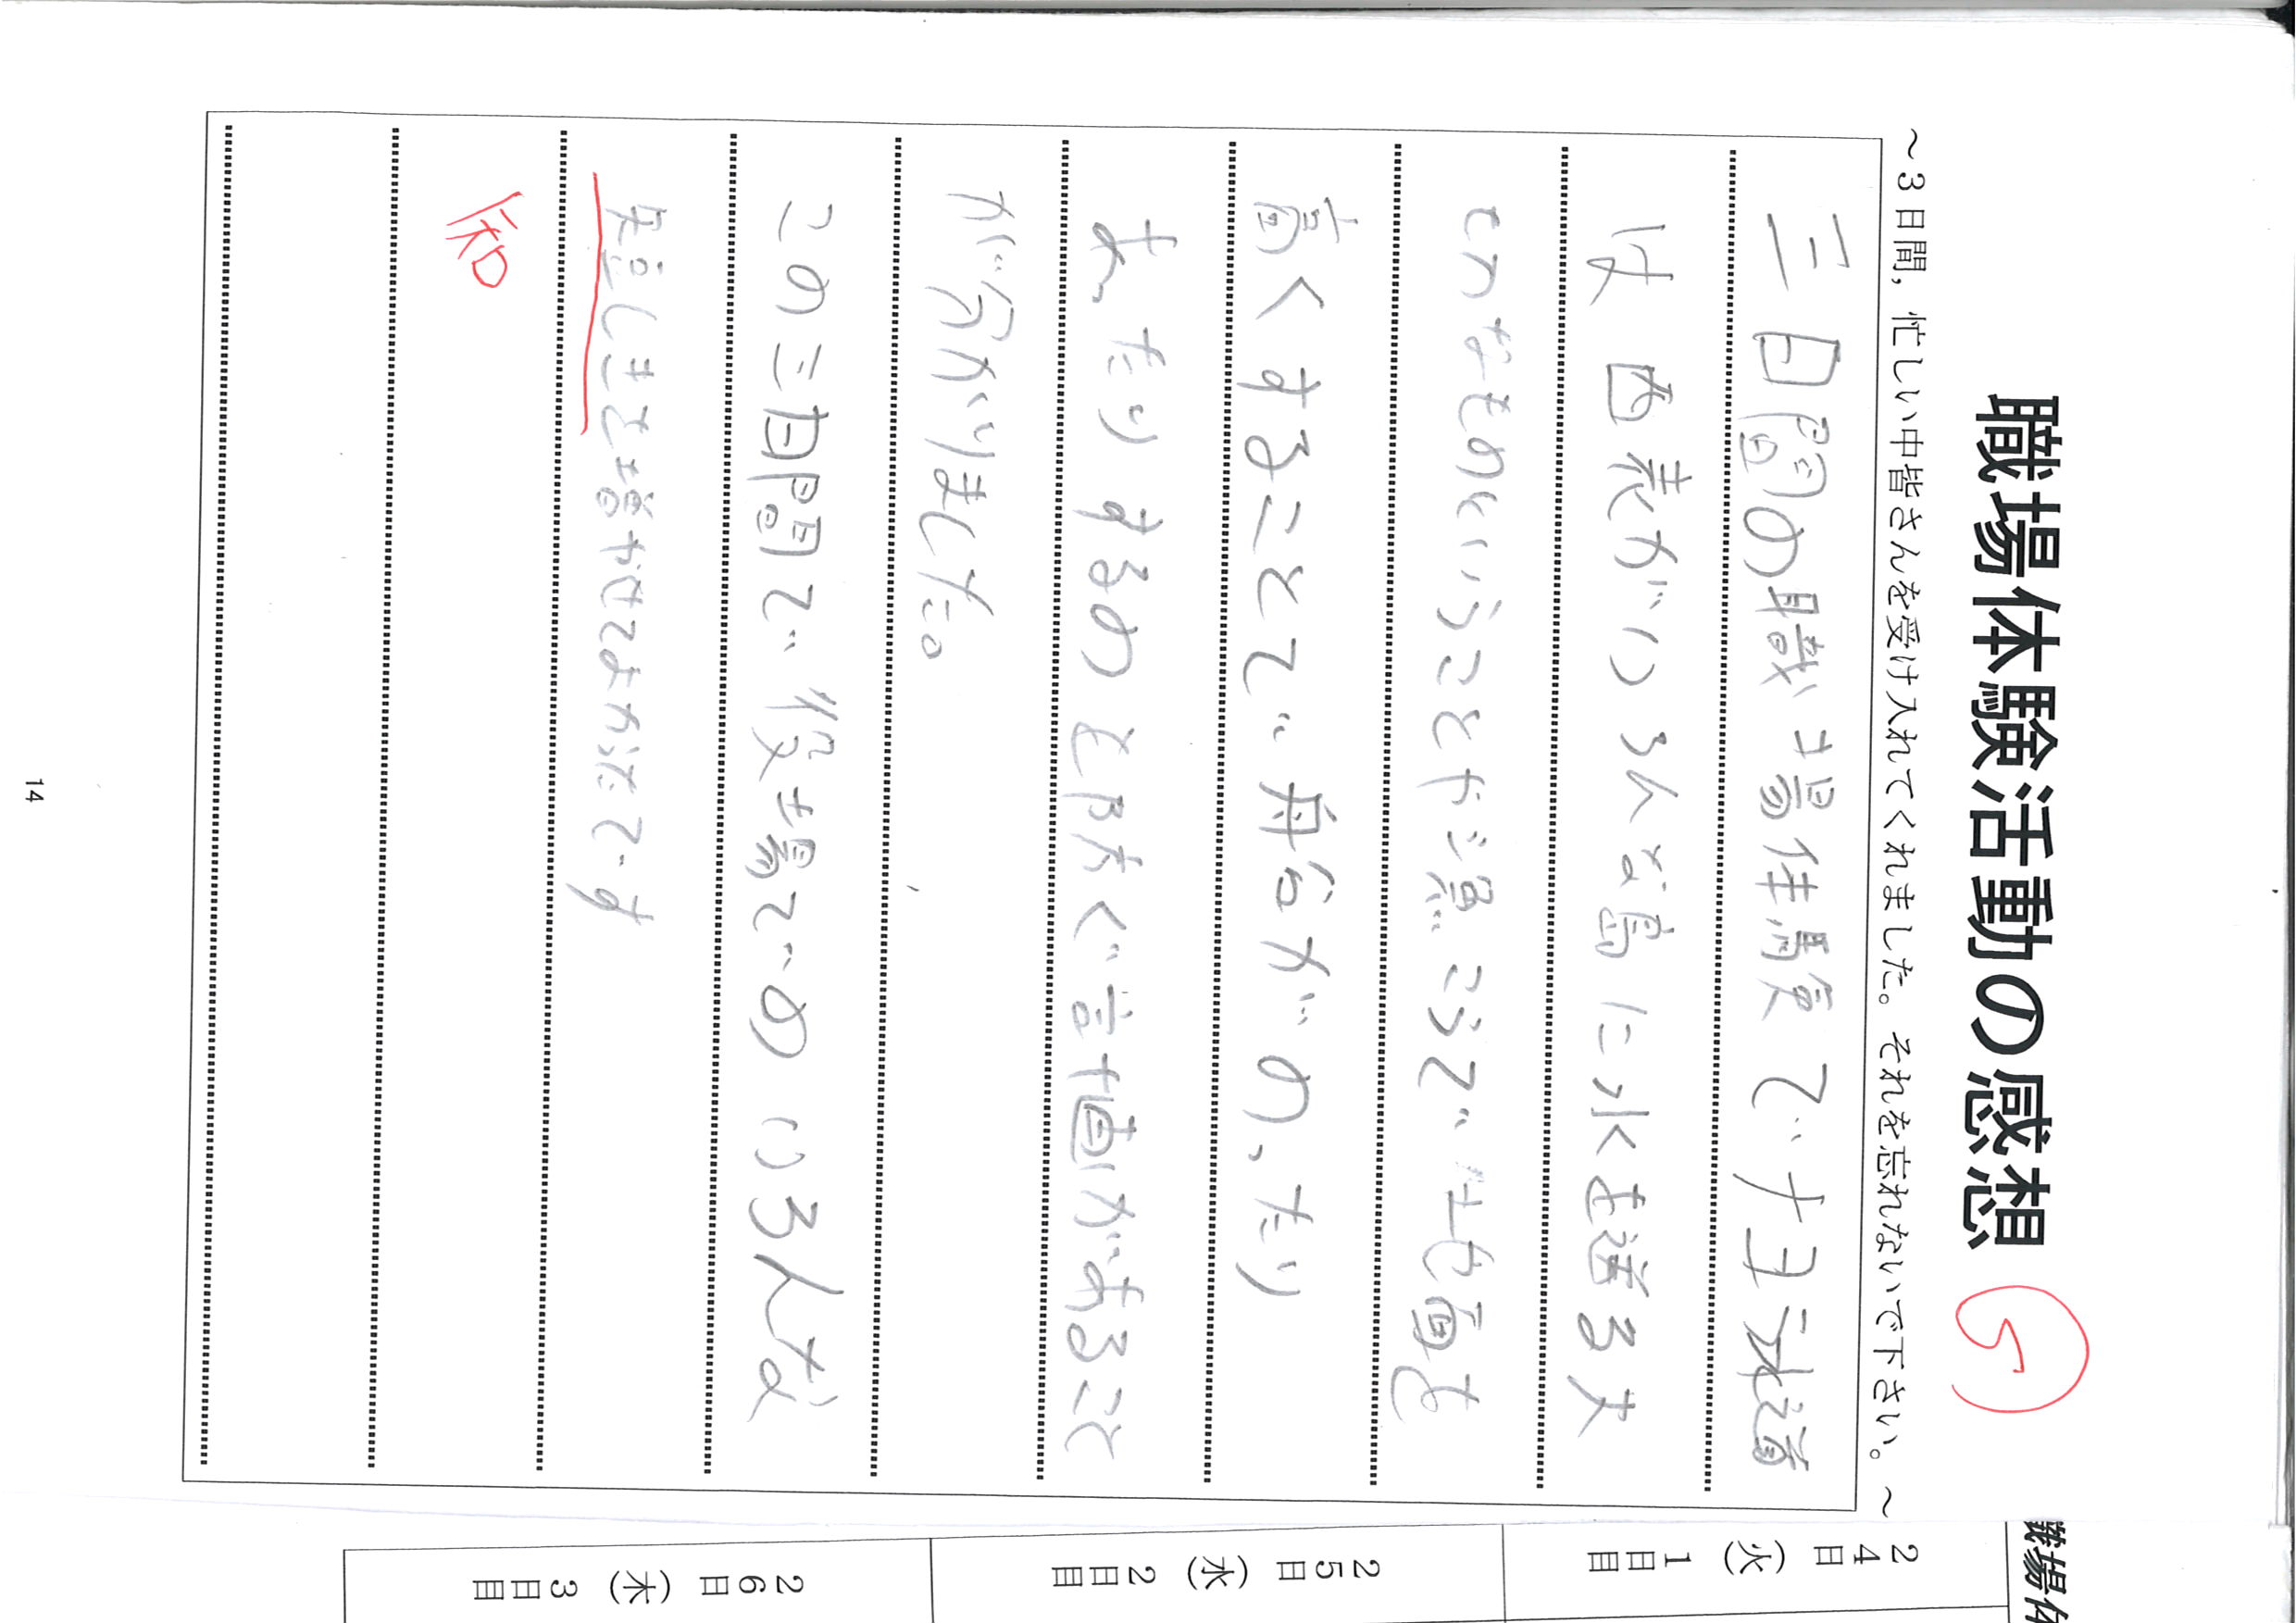 職場体験活動の感想
～3日間，忙しい中皆さんを受け入れてくれました。それを忘れないで下さい。～
三日間の職場体験で上水道
は西表がいろんな島に水を送る大
せつなものということや魚こうで土地面を
高くすることで、舟台がのったり
あったりするのをふせぐ価値があること
が分かりました。
この三日間で役場でのいろんな
知しきを増やせてよかったです
知
14
職場体
24日（火）1日目
25日（水）2日目
26日（木）3日目